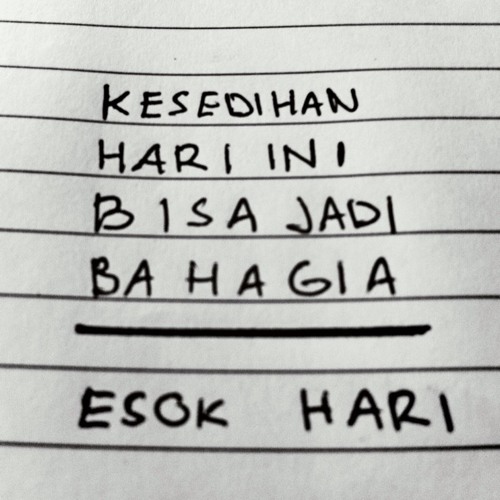 KESEDIHAN
HARI INI
BISA JADI
BAHAGIA
ESOK HARI